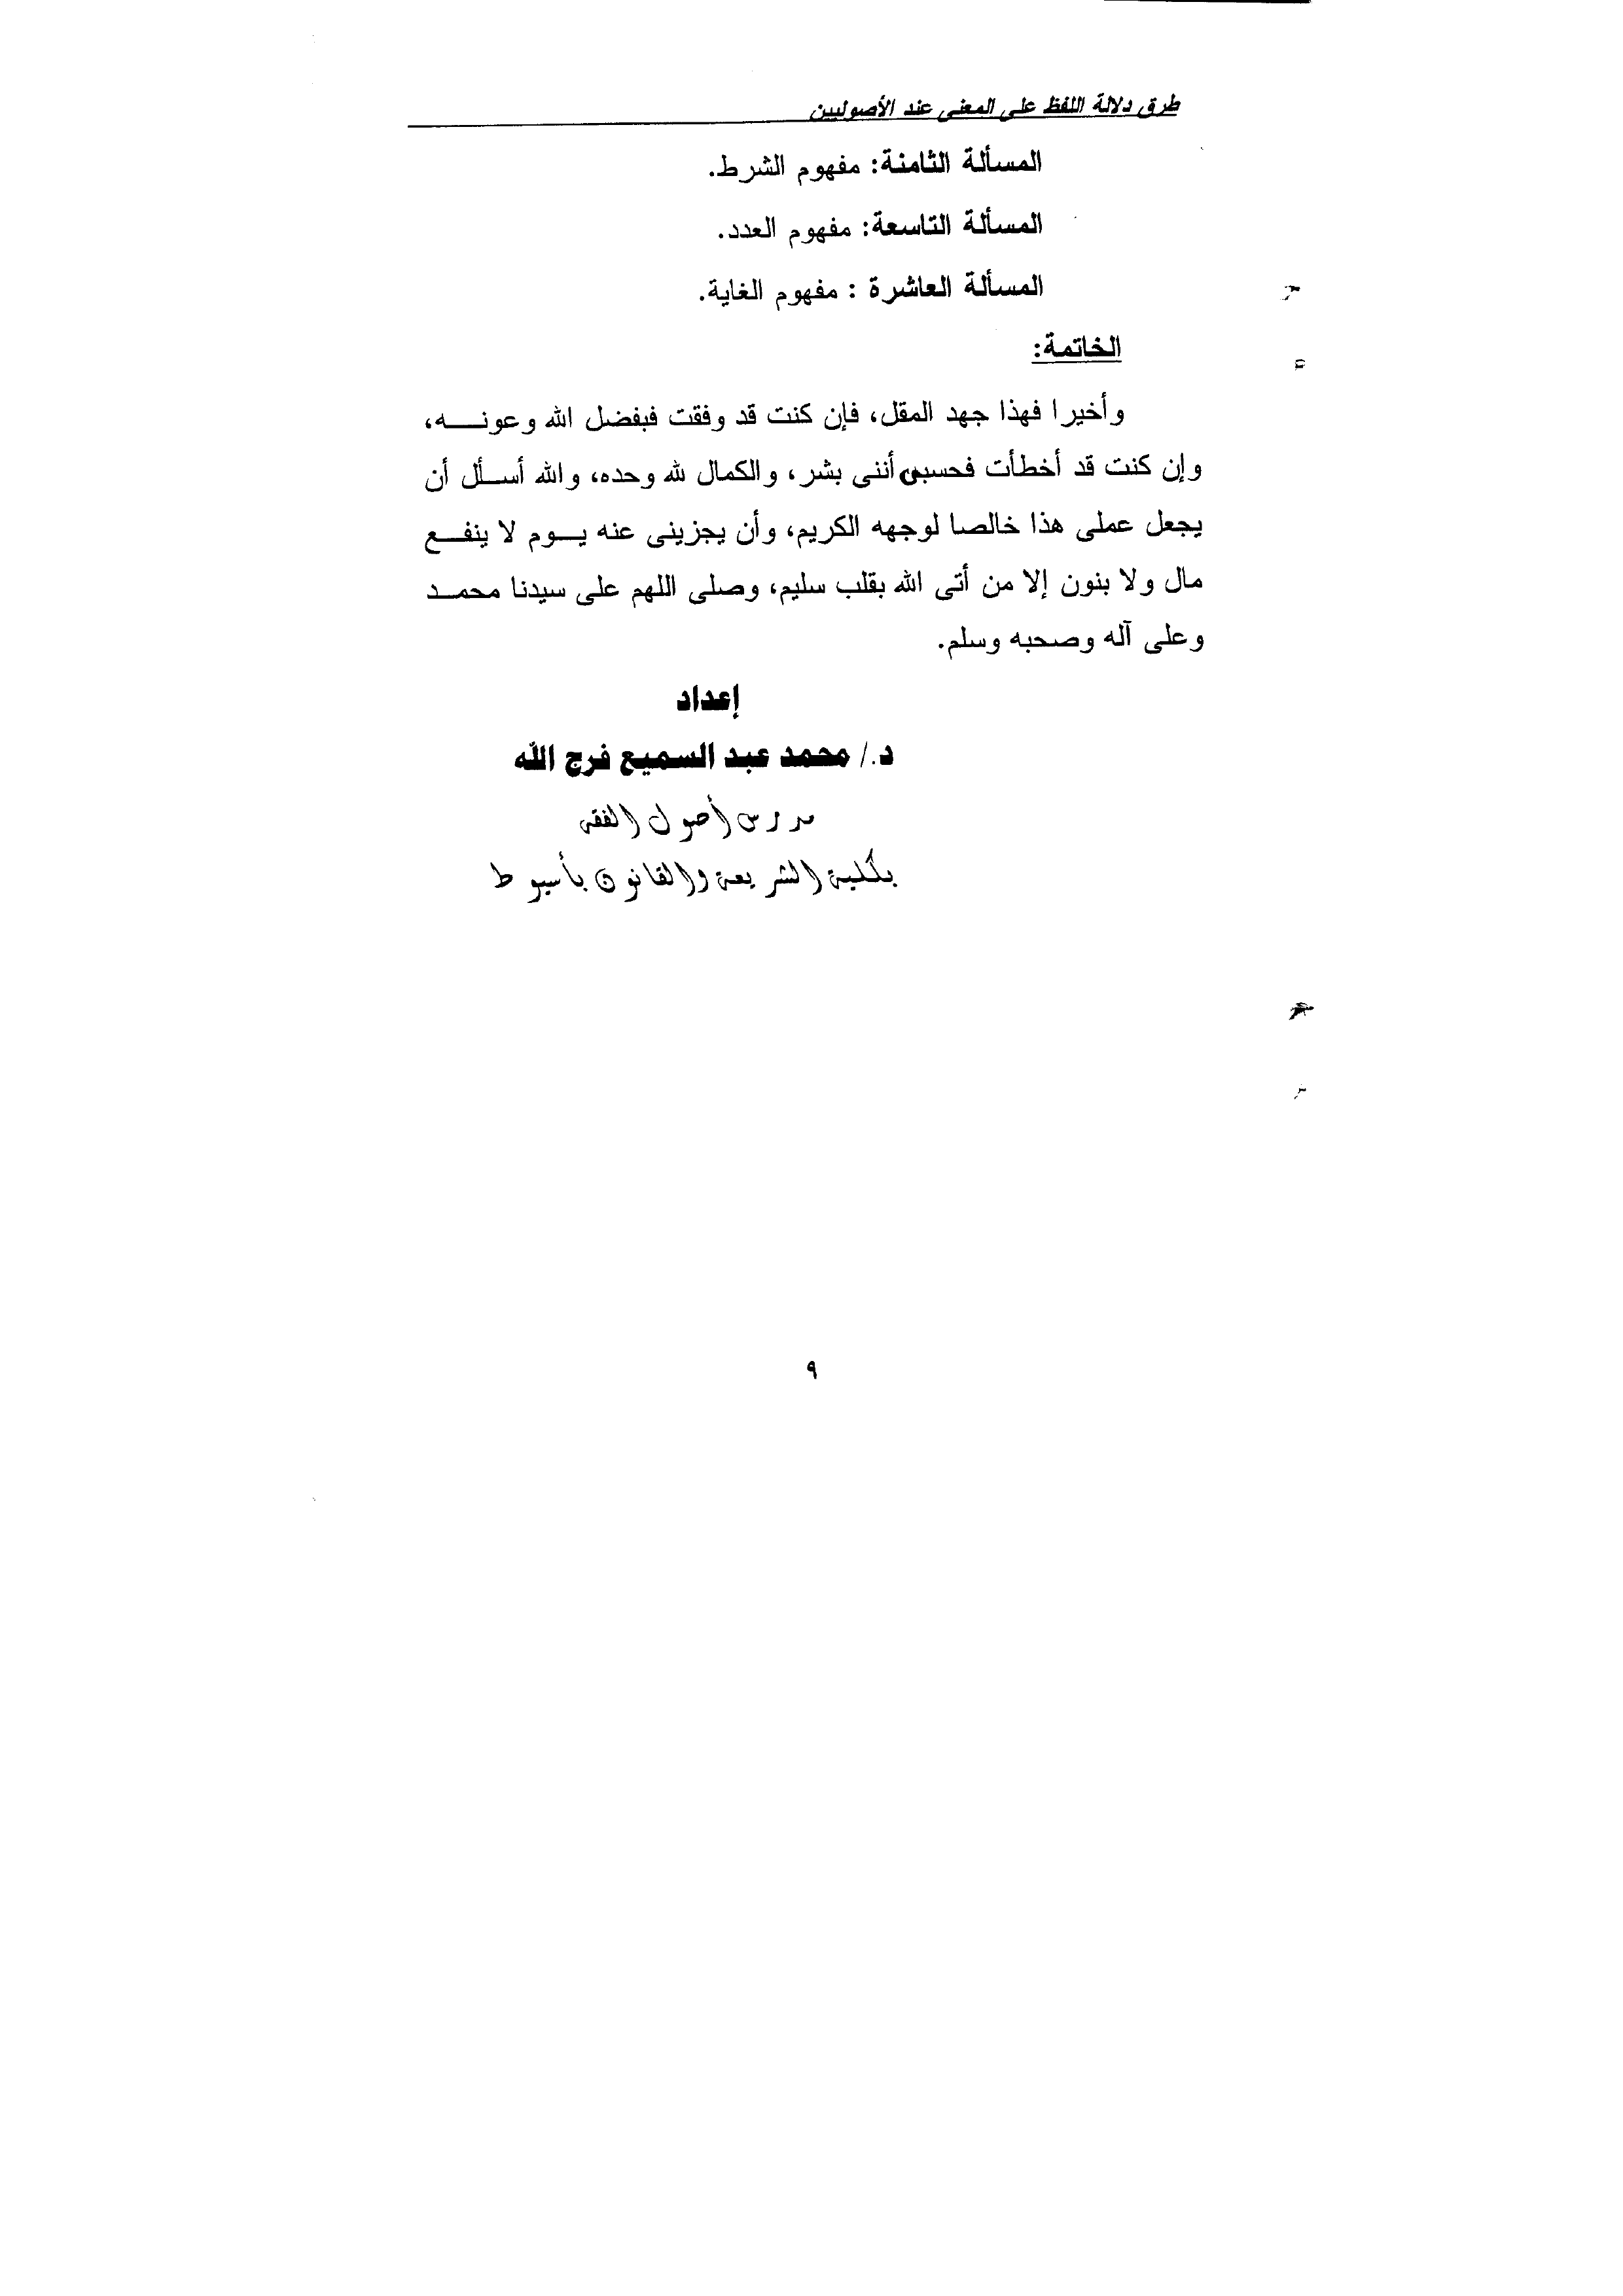 طرق دلالة اللفظ على المعنى عند الأصوليين
المسألة الثامنة: مفهوم الشرط.
المسألة التاسعة: مفهوم العدد.
المسألة العاشرة : مفهوم الغاية.
الخاتمة:
وأخيرا فهذا جهد المقل، فإن كنت قد وفقت فبفضل الله وعونـــه،
وإن كنت قد أخطأت فحسبى أننى بشر، والكمال لله وحده، والله أســأل أن
يجعل عملى هذا خالصا لوجهه الكريم، وأن يجزينى عنه يـــوم لا ينفـــع
مال ولا بنون إلا من أتى الله بقلب سليم، وصلى اللهم على سيدنا محمــد
وعلى آله وصحبه وسلم.
إعداد
د./ محمد عبد السميع فرج الله
مدرس أصول الفقه
بكلية الشريعة والقانون بأسيوط
٩